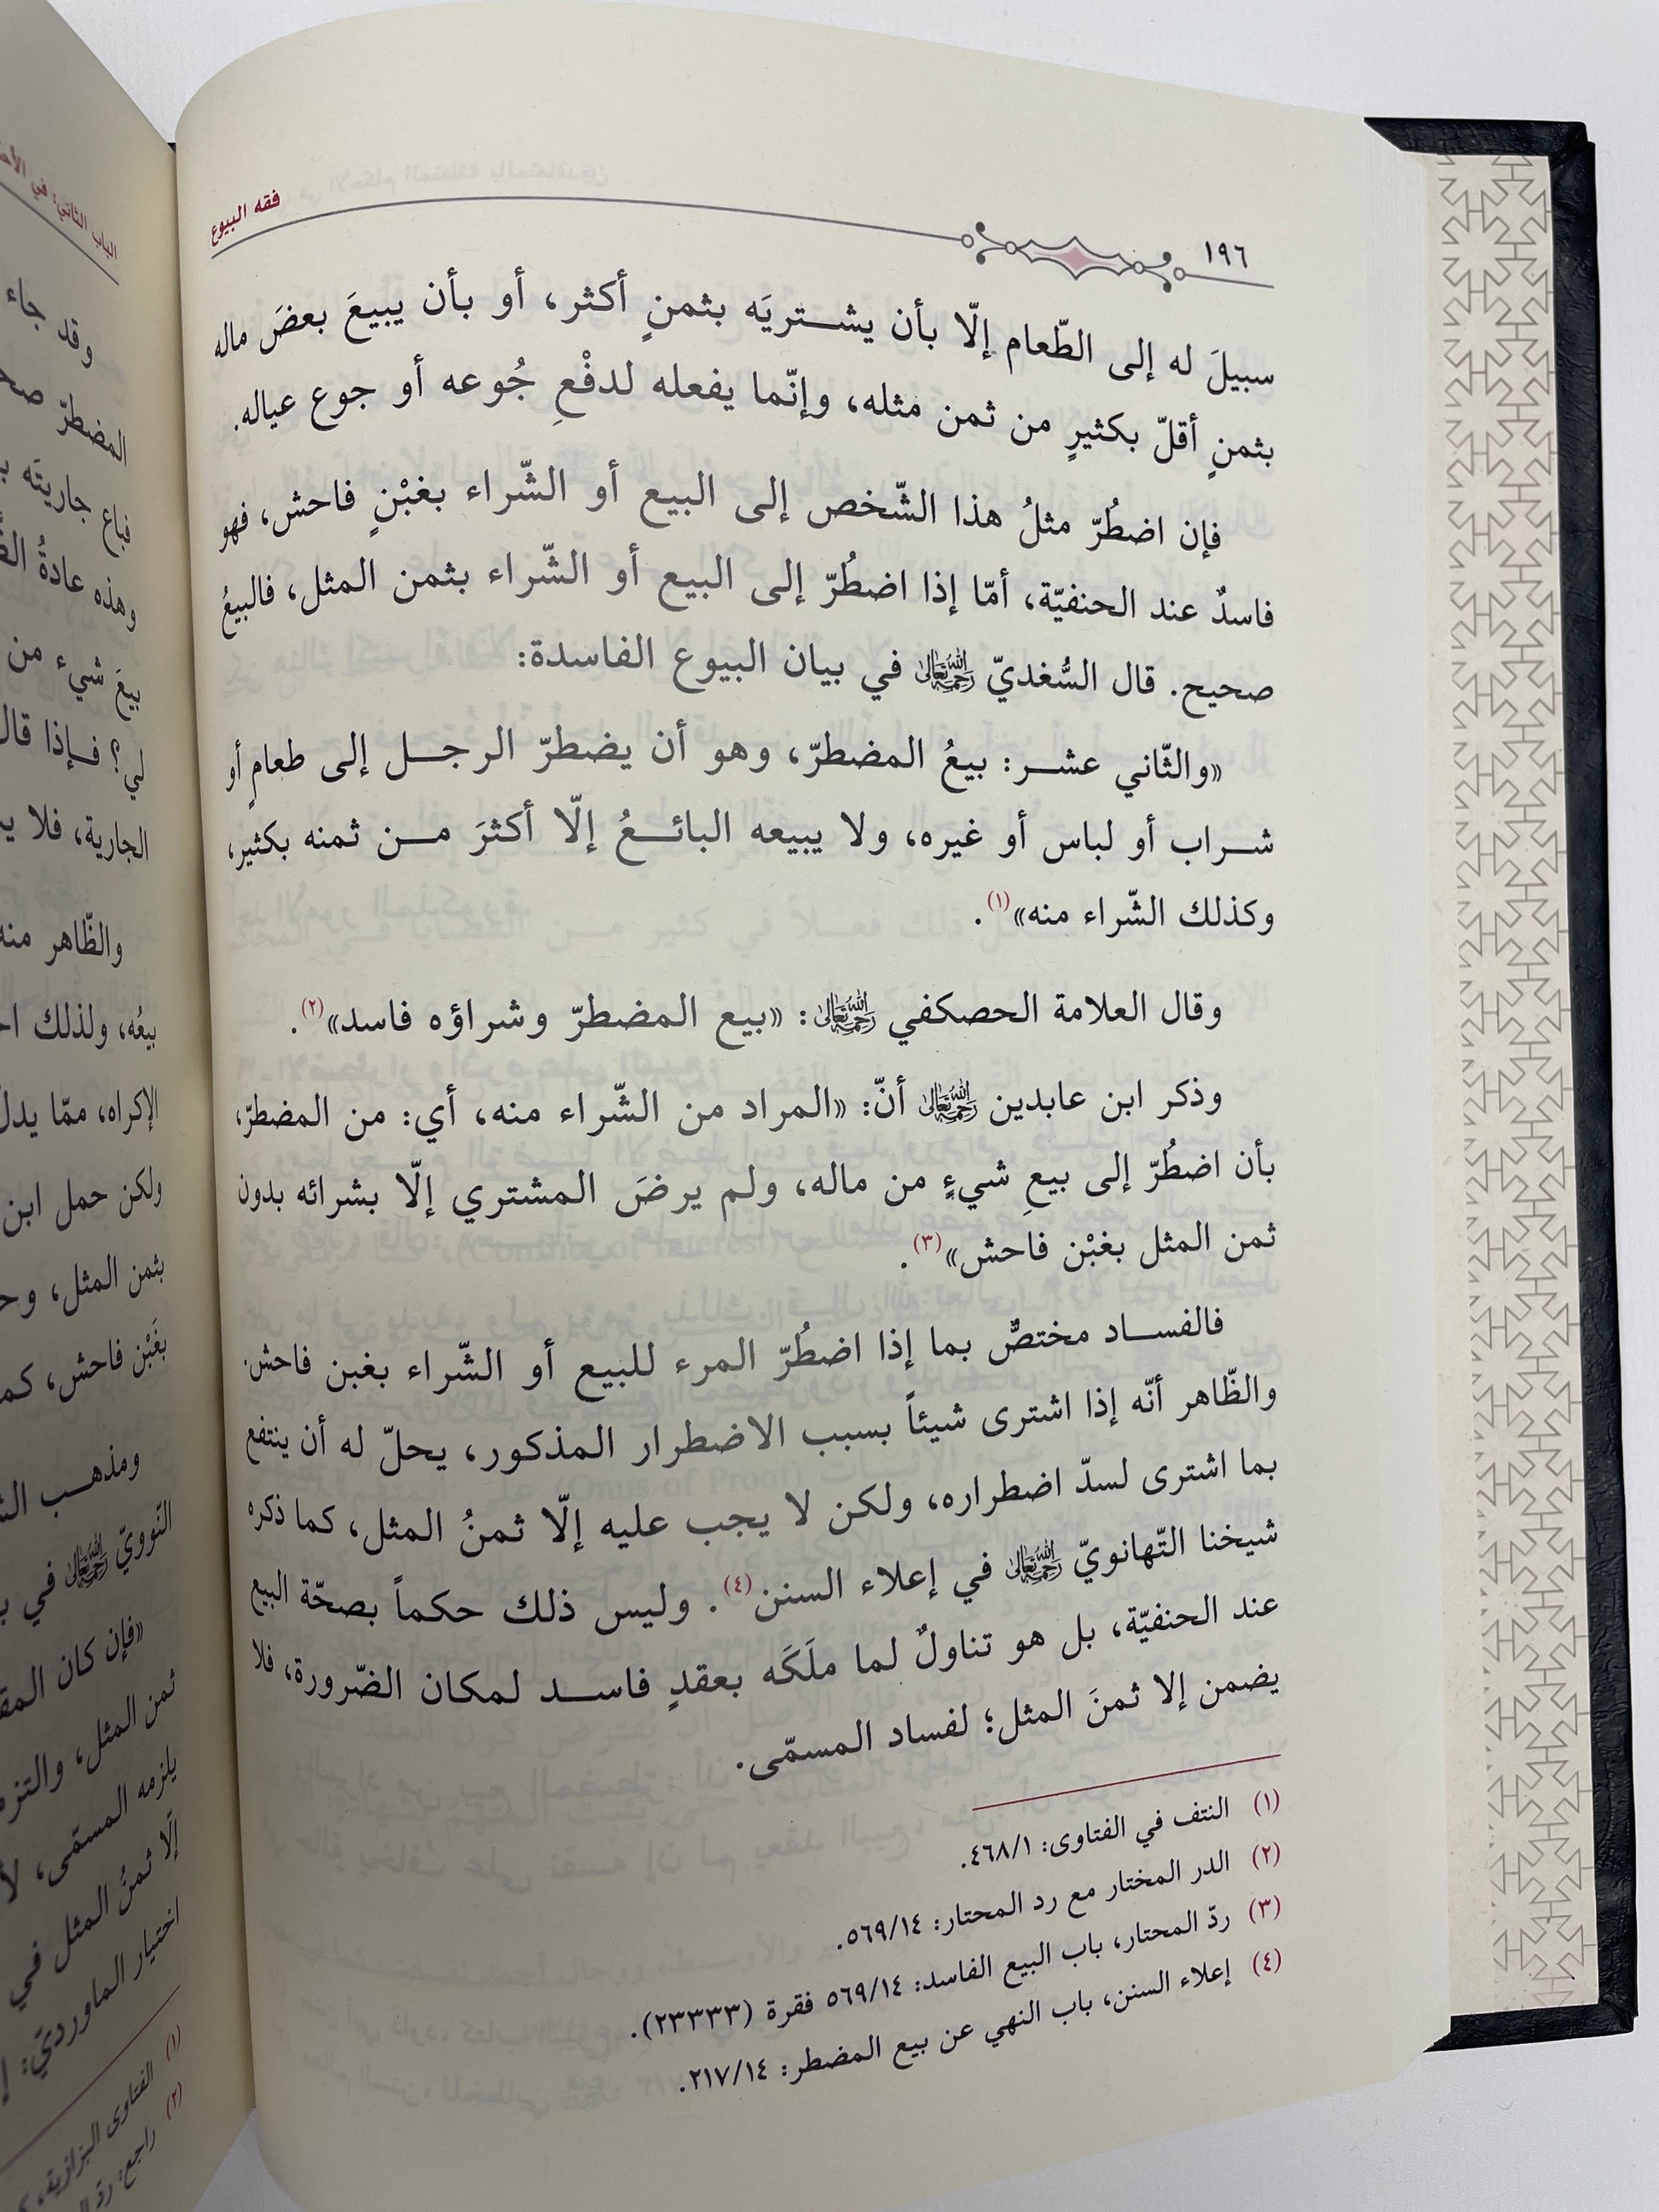 ١٩٦
فقه البيوع
سبيلَ له إلى الطّعام إلّا بأن يشتريَه بثمنٍ أكثر، أو بأن يبيعَ بعضَ ماله
بثمنٍ أقلّ بكثيرٍ من ثمن مثله، وإنّما يفعله لدفْعِ جُوعه أو جوع عياله.
فإن اضطُرّ مثلُ هذا الشّخص إلى البيع أو الشّراء بغبْنٍ فاحش، فهو
فاسدٌ عند الحنفيّة، أمّا إذا اضطُرّ إلى البيع أو الشّراء بثمن المثل، فالبيعُ
صحيح. قال السُّغديّ رَحِمَهُ اللهُ تَعَالَى في بيان البيوع الفاسدة:
«والثّاني عشر: بيعُ المضطرّ، وهو أن يضطرّ الرجل إلى طعامٍ أو
شراب أو لباس أو غيره، ولا يبيعه البائعُ إلّا أكثرَ من ثمنه بكثير،
وكذلك الشّراء منه»(١).
وقال العلامة الحصكفي رَحِمَهُ اللهُ تَعَالَى: «بيع المضطرّ وشراؤه فاسد»(٢).
وذكر ابن عابدين رَحِمَهُ اللهُ تَعَالَى أنّ: «المراد من الشّراء منه، أي: من المضطرّ،
بأن اضطُرّ إلى بيعِ شيءٍ من ماله، ولم يرضَ المشتري إلّا بشرائه بدون
ثمن المثل بغبْن فاحش»(٣).
فالفساد مختصٌّ بما إذا اضطُرّ المرء للبيع أو الشّراء بغبن فاحش.
والظّاهر أنّه إذا اشترى شيئاً بسبب الاضطرار المذكور، يحلّ له أن ينتفع
بما اشترى لسدّ اضطراره، ولكن لا يجب عليه إلّا ثمنُ المثل، كما ذكره
شيخنا التّهانويّ رَحِمَهُ اللهُ تَعَالَى في إعلاء السنن(٤). وليس ذلك حكماً بصحّة البيع
عند الحنفيّة، بل هو تناولٌ لما ملَكَه بعقدٍ فاسد لمكان الضّرورة، فلا
يضمن إلا ثمنَ المثل؛ لفساد المسمّى.
(١) النتف في الفتاوى: ٤٦٨/١.
(٢) الدر المختار مع رد المحتار: ٥٦٩/١٤.
(٣) ردّ المحتار، باب البيع الفاسد: ٥٦٩/١٤ فقرة (٢٣٣٣٣).
(٤) إعلاء السنن، باب النهي عن بيع المضطر: ٢١٧/١٤.
الباب الثاني: في
وقد جاء
المضطرّ
فباع جاريتَه
وهذه عادةُ
بيعَ شيء من
لي؟ فإذا قال
الجارية، فلا
والظّاهر منه
بيعُه، ولذلك
الإكراه، ممّا يدل
ولكن حمل ابن
بثمن المثل،
بغَبْن فاحش،
ومذهب
النّوويّ رَحِمَهُ اللهُ تَعَالَى في
«فإن كان
ثمن المثل،
يلزمه المسمّى،
إلّا ثمنُ المثل في
اختيار الماورديّ:
(١) الفتاوى البزازية،
(٢) راجع: ردّ